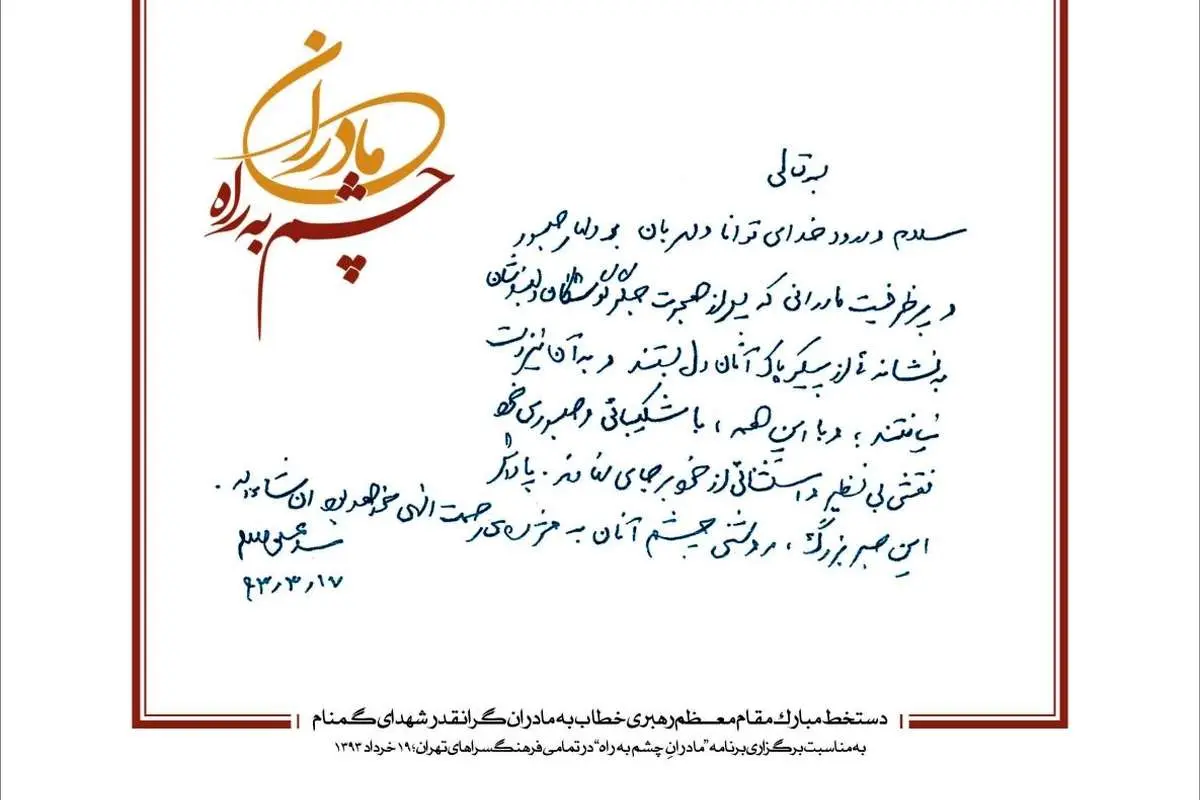 مادران
چشم به راه
بسمه تعالی
سلام و درود خدای توانا و مهربان به دلهای صبور
و پر ظرفیت مادرانی که پس از هجرت جگرگوشگان دلبندشان
به نشانه‌ئی از پیکر پاک آنان دل بستند و به آن نیز دست
نیافتند؛ و با این همه، با شکیبائی و صبوری خود
نقشی بی نظیر و استثنائی از خود بر جای نهادند. پاداش
این صبر بزرگ، روشنی چشم آنان به مژده‌ی رحمت الهی خواهد بود ان شاءالله.
سید علی خامنه‌ای
۹۳٫۳٫۱۷
دستخط مبارک مقام معظم رهبری خطاب به مادران گرانقدر شهدای گمنام
به مناسبت برگزاری برنامه "مادرانِ چشم به راه" در تمامی فرهنگسراهای تهران؛ ۱۹ خرداد ۱۳۹۳